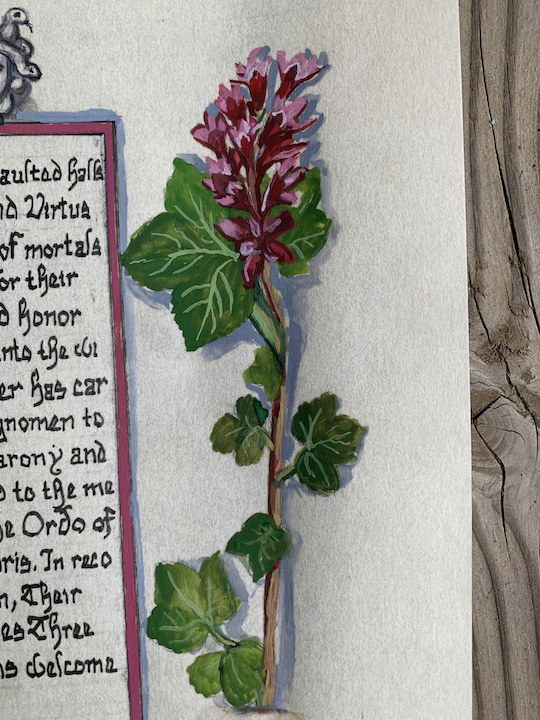 aulted halls
nd Virtus
of mortals
or their
d honor
nto the
er has car
gnomen to
arony and
o to the me
e Ordo of
oris. In reco
n, Their
es Three
ns welcome